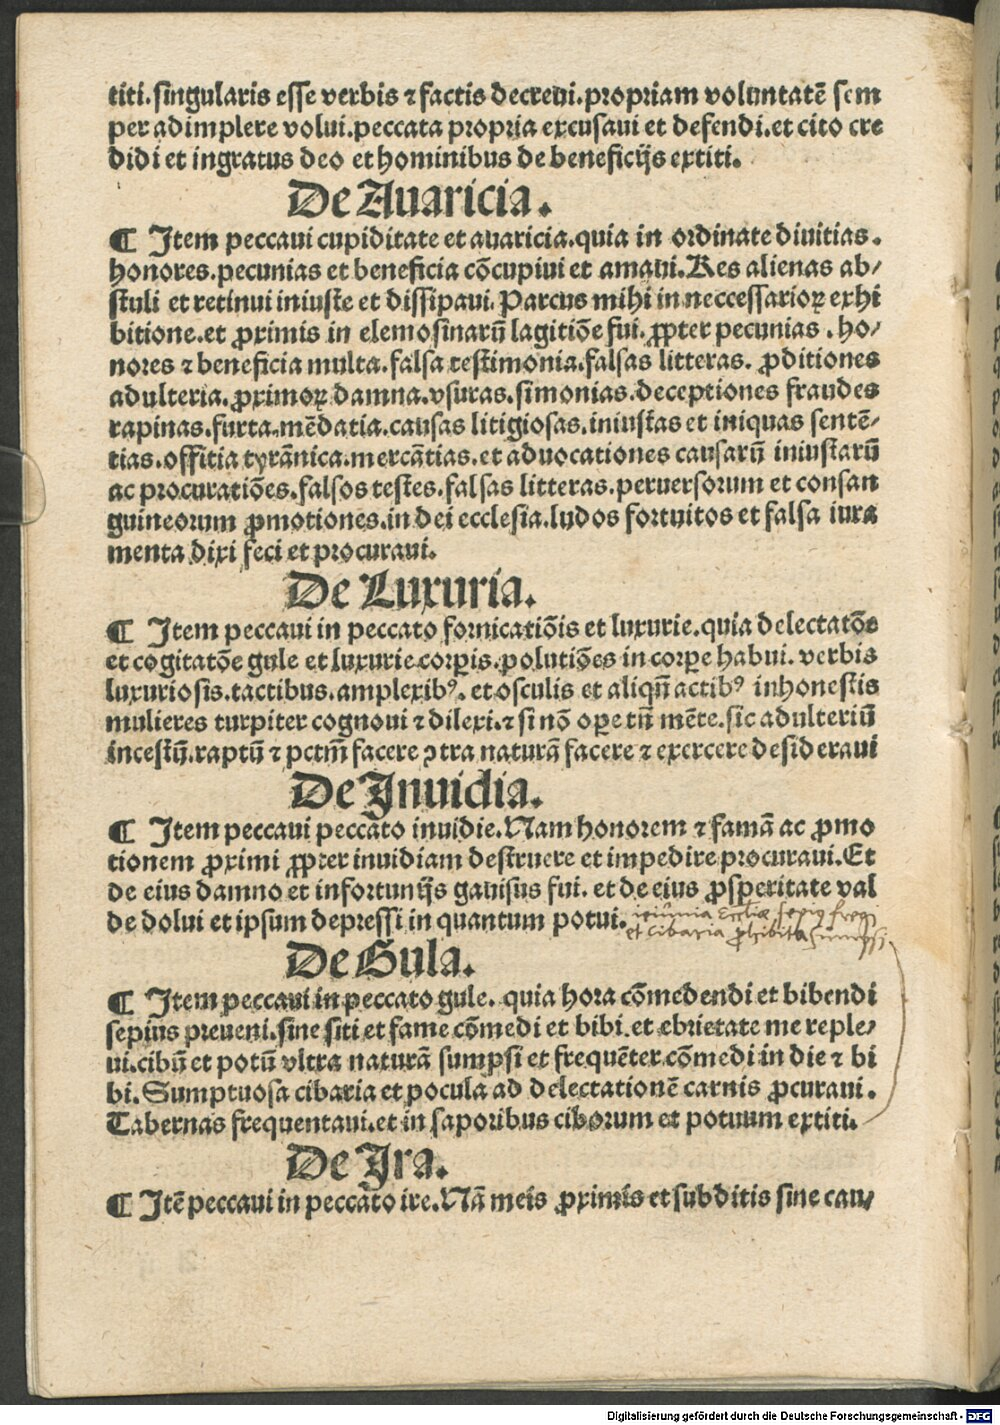 titi.singularis esse verbis ⁊ factis decreui.propriam voluntatē sem
per adimplere volui.peccata propria excusaui et defendi.et cito cre
didi et ingratus deo et hominibus de beneficijs extiti.
De Auaricia.
¶ Item peccaui cupiditate et auaricia.quia in ordinate diuitias.
honores.pecunias et beneficia cōcupiui et amaui.Res alienas ab/
stuli et retinui iniuste et dissipaui.Parcus mihi in neccessarioꝝ exhi
bitione.et ꝓximis in elemosinarū lagitiōe fui.ꝓpter pecunias.ho/
nores ⁊ beneficia multa.falsa testimonia.falsas litteras.ꝓditiones
adulteria.ꝓximoꝝ damna.vsuras.simonias.deceptiones fraudes
rapinas.furta.mēdatia.causas litigiosas.iniustas et iniquas sentē-
tias.offitia tyrānica.mercātias.et aduocationes causarū iniustarū
ac procuratiōes.falsos testes.falsas litteras.peruersorum et consan
guineorum ꝓmotiones.in dei ecclesia.ludos fortuitos et falsa iura
menta dixi feci et procuraui.
De Luxuria.
¶ Item peccaui in peccato fornicatiōis et luxurie.quia delectatōe
et cogitatōe gule et luxurie corꝑis.polutiōes in corꝑe habui.verbis
luxuriosis.tactibus.amplexibꝰ.et osculis et aliqn̄ actibꝰ inhonestis
mulieres turpiter cognoui ⁊ dilexi.⁊ si nō oꝑe tn̄ mēte.sic adulteriū
incestū.raptū ⁊ pctm̄ facere ꝯtra naturā facere ⁊ exercere desideraui
De Inuidia.
¶ Item peccaui peccato inuidie.Nam honorem ⁊ famā ac ꝓmo
tionem ꝓximi ꝓpter inuidiam destruere et impedire procuraui.Et
de eius damno et infortunijs gauisus fui.et de eius ꝓsperitate val
de dolui et ipsum depressi in quantum potui.
ieiunia Eccliæ sepiꝰ fregi
et cibaria ꝓhibita sumpsi
De Gula.
¶ Item peccaui in peccato gule. quia hora cōmedendi et bibendi
sepius preueni.sine siti et fame cōmedi et bibi.et ebrietate me reple/
ui.cibū et potū vltra naturā sumpsi et frequēter cōmedi in die ⁊ bi
bi.Sumptuosa cibaria et pocula ad delectationē carnis ꝓcuraui.
Tabernas frequentaui.et in saporibus ciborum et potuum extiti.
De Ira.
¶ Itē peccaui in peccato ire.Nā meis ꝓximis et subditis sine cau/
Digitalisierung gefördert durch die Deutsche Forschungsgemeinschaft - DFG